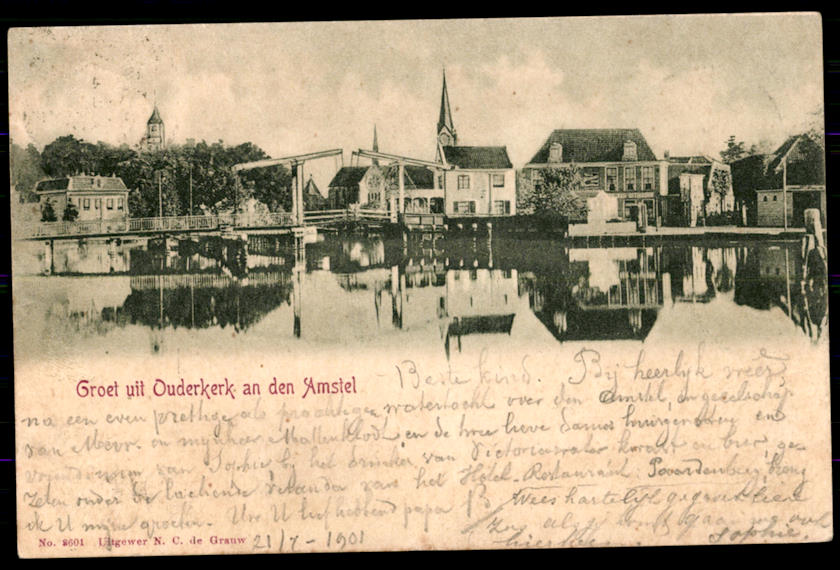 Groet uit Ouderkerk an den Amstel
Beste kind. Bij heerlijk weer
na een even prettige als prachtige watertocht over den Amstel, in gezelschap
van Mevr. en mijnheer en de twee lieve dames en
van Sophie, bij het drinken van Victoriawater kwast en bier, ge-
zeten onder de veranda van het Hotel-Restaurant Paardenburg, breng
ik U mijne groeten. Uw U liefhebbend papa B
Wees hartelijk gegroet
gaan we ook
hierheen. Sophie.
No. 8601 Uitgewer N. C. de Grauw 21/7 - 1901